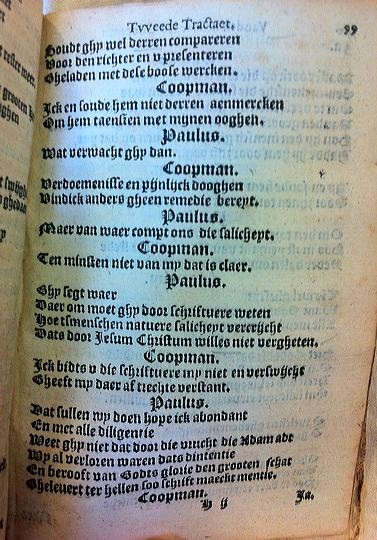 Tvveede Tractaet. 99
Soudt ghy wel derren compareren
Voor den richter en v presenteren
Gheladen met dese boose wercken.
Coopman.
Ick en soude hem niet derren aenmercken
Om hem taensien met mynen ooghen.
Paulus.
Wat verwacht ghy dan.
Coopman.
Verdoemenisse en pijnlijck dooghen
Vindick anders gheen remedie bereyt.
Paulus.
Maer van waer compt ons die salicheyt.
Coopman.
Ten minsten niet van my dat is claer.
Paulus.
Ghy segt waer
Daer om moet ghy door schriftuere weten
Hoe tsmenschen natuere salicheyt vercrijcht
Dats door Jesum Christum willes niet vergheten.
Coopman.
Ick bidts v die schriftuere my niet en verswijcht
Gheeft my daer af trechte verstant.
Paulus.
Dat sullen wy doen hope ick abondant
En met alle diligentie
Weet ghy niet dat door die vrucht die Adam adt
Wy al verloren waren dats dintentie
En berooft van Godts glorie den grooten schat
Gheleuert ter hellen soo schrift maeckt mentie.
Coopman.
H ij Ja.